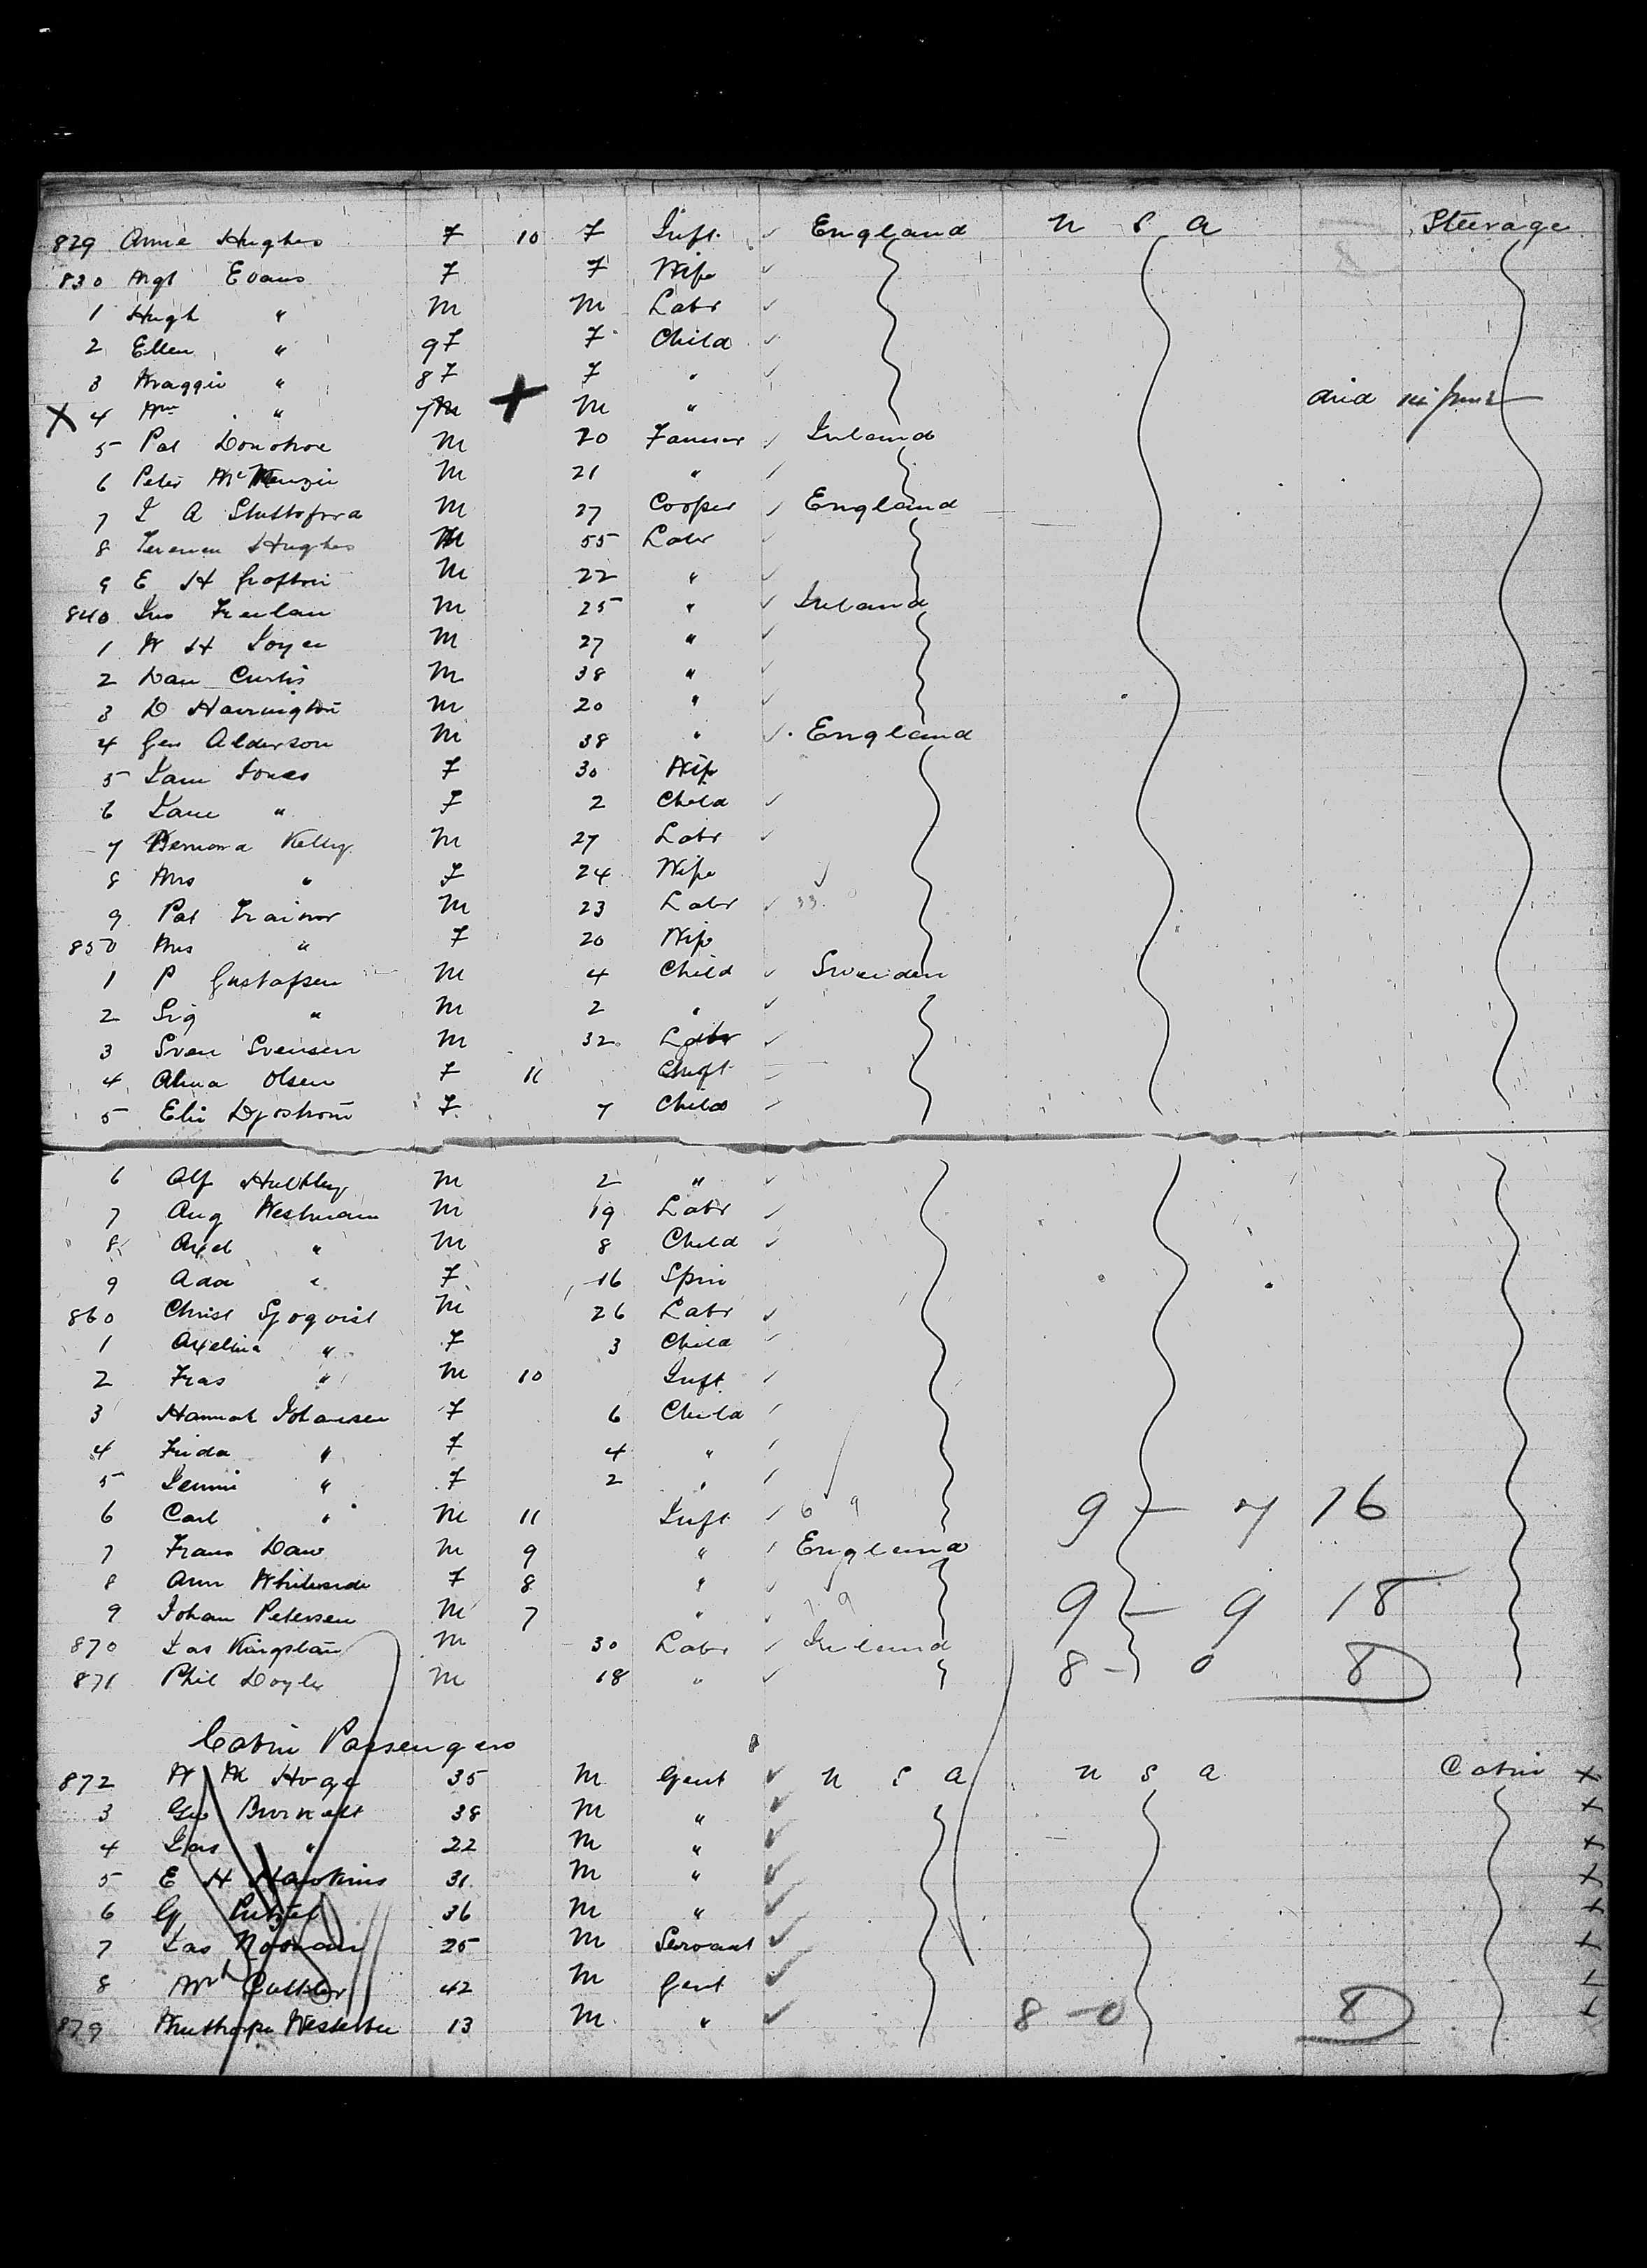 829 Annie Hughes F 10 F Inft. ✓ England U S A Steerage
830 Mgt Evans F F Wife ✓
1 Hugh " M M Labr ✓
2 Ellen " 9 F F Child ✓
3 Maggie " 8 F F " ✓
X 4 Wm " 7 M X M " died
5 Pat Donohoe M 20 Farmer ✓ Ireland
6 Peter McKenzie M 21 " ✓
7 J A Shuttoford M 27 Cooper ✓ England
8 Terence Hughes M 55 Labr ✓
9 E H Grafton M 22 " ✓
840 Jno M 25 " ✓ Ireland
1 W H M 27 " ✓
2 Dan Curtis M 38 " ✓
3 D Harrington M 20 " ✓
4 Geo Alderson M 38 " ✓ England
5 Jane Jones F 30 Wife
6 Jane " F 2 Child ✓
7 Bernard Kelly M 27 Labr ✓
8 Mrs " F 24 Wife ✓
9 Pat Trainor M 23 Labr ✓ 33
850 Mrs " F 20 Wife
1 P Gustafsen M 4 Child ✓ Sweden
2 Sig " M 2 " ✓
3 Sven Svensen M 32 Labr ✓
4 Alma Olsen F 11 Inft
5 Elis F 7 Child ✓
6 Alf M 2 " ✓
7 Aug Westmann M 19 Labr ✓
8 Axel " M 8 Child ✓
9 Ada " F 16 Spin
860 Christ Sjoqvist M 26 Labr ✓
1 Axelina " F 3 Child ✓
2 Fras " M 10 Inft. ✓
3 Hannah Johansen F 6 Child ✓
4 Frida " F 4 " ✓
5 Jennie " F 2 " ✓
6 Carl " M 11 Inft. ✓ 6 9 9 — 7 16
7 Frans Daw M 9 " ✓ England
8 Ann Whiteside F 8 " ✓
9 Johan Petersen M 7 " ✓ 7 9 9 — 9 18
870 Jas M 30 Labr ✓ Ireland
871 Phil Doyle M 18 " ✓ 8 — 0 8
Cabin Passengers
872 W M Hoge 35 M Gent ✓ U S A U S A Cabin X
3 Geo Burnett 38 M " ✓ X
4 Jas " 22 M " ✓ X
5 E H Hawkins 31 M " ✓ X
6 G 36 M " ✓ X
7 Jas Noonan 25 M Servant ✓ X
8 Mr 42 M Gent ✓ X
879 Winthorpe 13 M " ✓ 8 — 0 8 X